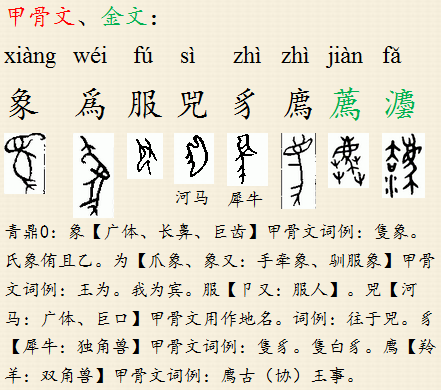 甲骨文、金文：
xiàng wéi fú sì zhì zhì jiàn fǎ
象 爲 服 咒 豸 廌 薦 灋
河马 犀牛
青鼎0：象【广体、长鼻、巨齿】甲骨文词例：隻象。
氏象侑且乙。为【爪象、象又：手牵象、驯服象】甲骨
文词例：王为。我为宾。服【卩又：服人】。咒【河
马：广体、巨口】甲骨文用作地名。词例：往于咒。豸
【犀牛：独角兽】甲骨文词例：隻豸。隻白豸。廌【羚
羊：双角兽】甲骨文词例：廌古（协）王事。